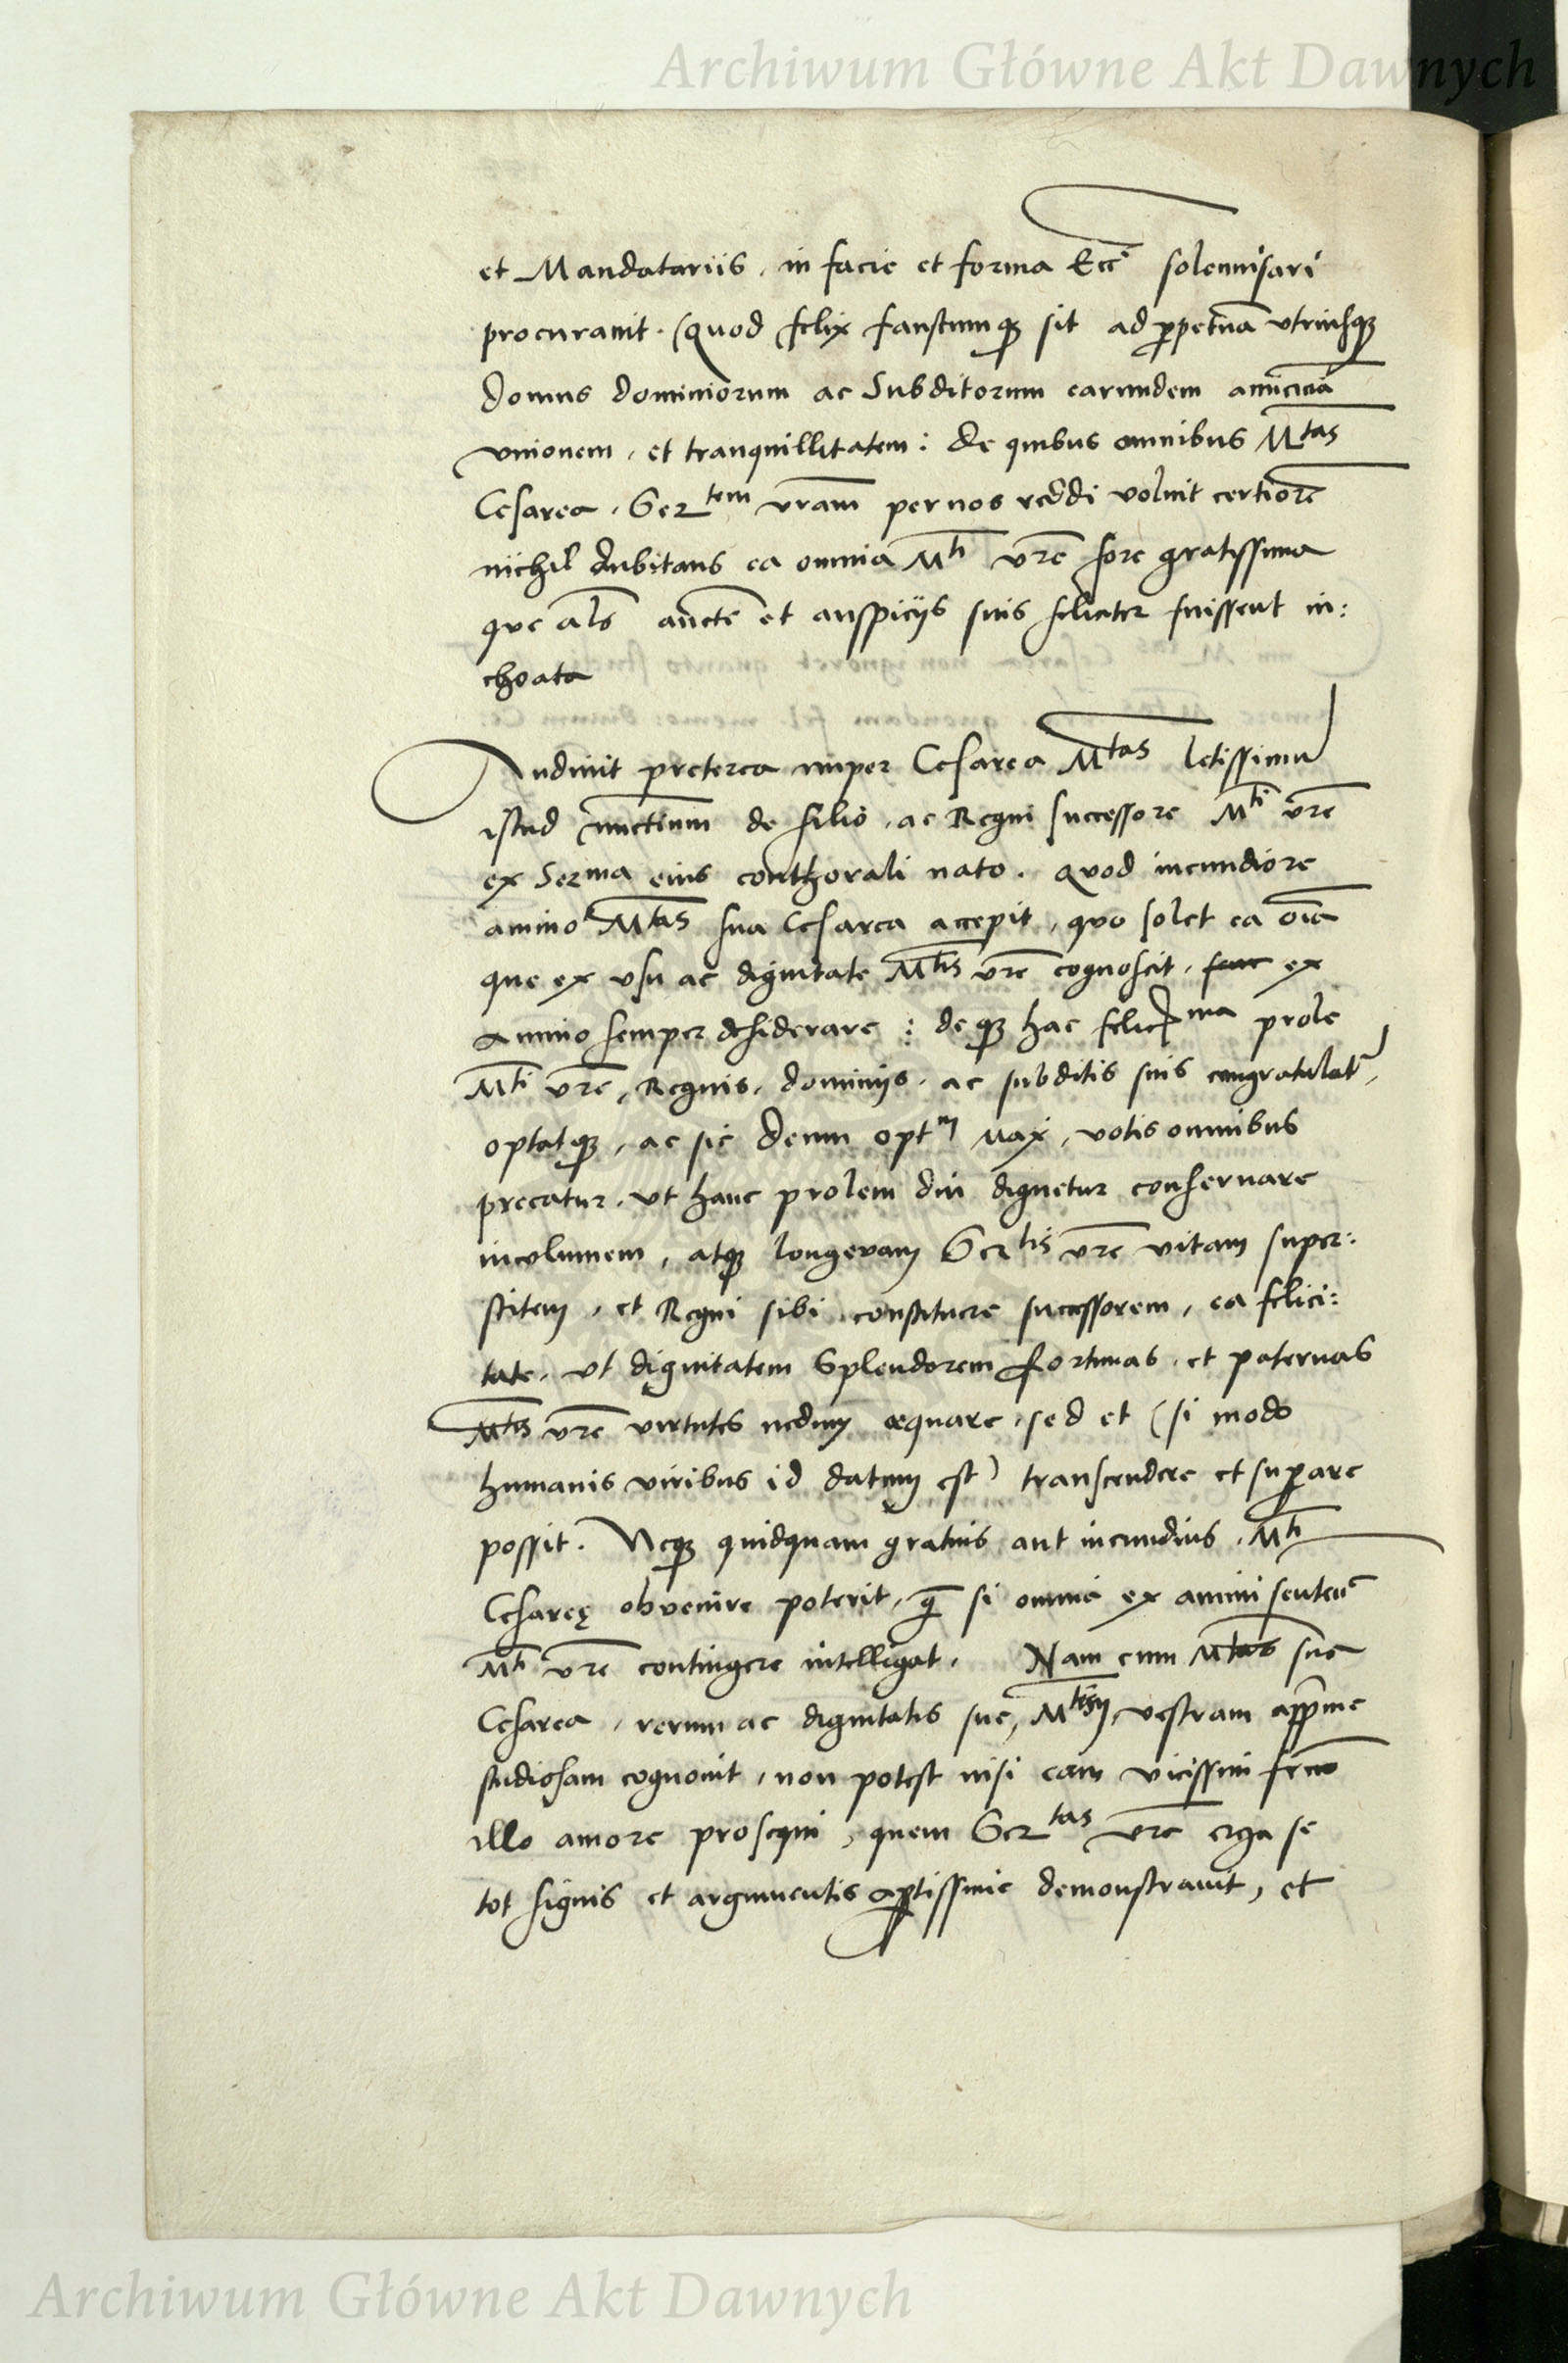 Archiwum Główne Akt Dawnych
et Mandatariis, in facie et forma Eccē solennisari
procuravit. (quod felix faustumq; sit ad ꝑpetuā utriusq;
domus dominiorum ac Subditorum earumdem amicitiā
unionem, et tranquillitatem: De quibus omnibus Mtas
Cesarea, Sertem vram per nos reddi voluit certiorē
nichil dubitans ea omnia Mti vrē fore gratissima
que als auctē et auspicijs suis feliciter fuissent in:
choata
Audivit preterea nuper Cesarea Mtas letissimū
istud nunctium de filio, ac Regni successore Mti vrē
ex Serma eius conthorali nato. Quod iucundiore
animo Mtas sua Cesarea accepit, quo solet ea oīa
que ex usu ac dignitate Mtis vrē cognoscit, ex
animo semper desiderare: deq; hac felicma prole
Mti vrē, Regnis, dominijs, ac subditis suis congratulat,
optatq;, ac sic Deum optm Max, votis omnibus
precatur, ut hanc prolem diu dignetur conservare
incolumem, atq; longevam Sertis vrē vitam super:
stitem, et Regni sibi constituere successorem, ea felici:
tate, ut dignitatem Splendorem fortunas, et paternas
Mtis vrē virtutes nedum æquare, sed et (si modo
humanis viribus id datum est) transcendere et suꝑare
possit. Neq; quidquam gratius aut iucundius, Mti
Cesareę obvenire poterit, q̄ si omnia ex animi sentēn
Mti vrē contingere intelligat. Nam cum Mtas sua
Cesarea, rerum ac dignitatis sue, Mtem vestram apprīme
studiosam cognovit, non potest nisi eam vicissim
illo amore prosequi, quem Sertas vrā erga se
tot signis et argumentis aptissime demonstravit, et
Archiwum Główne Akt Dawnych